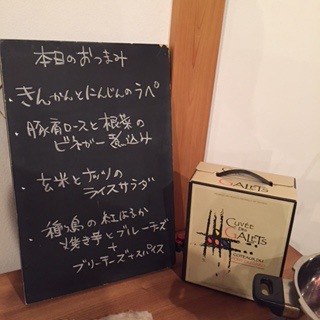 本日のおつまみ
・きんかんとにんじんのラペ
・豚肩ロースと根菜の
ビネガー煮込み
・玄米とナッツの
ライスサラダ
・種子島の紅はるか
焼き芋とブルーチーズ
+
ブリーチーズ+スパイス
GALETS
CUVÉE
DES
GALETS